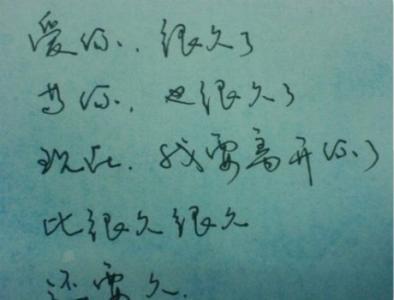 爱你，很久了
等你，也很久了
现在，我要离开你了
比很久很久
还要久.